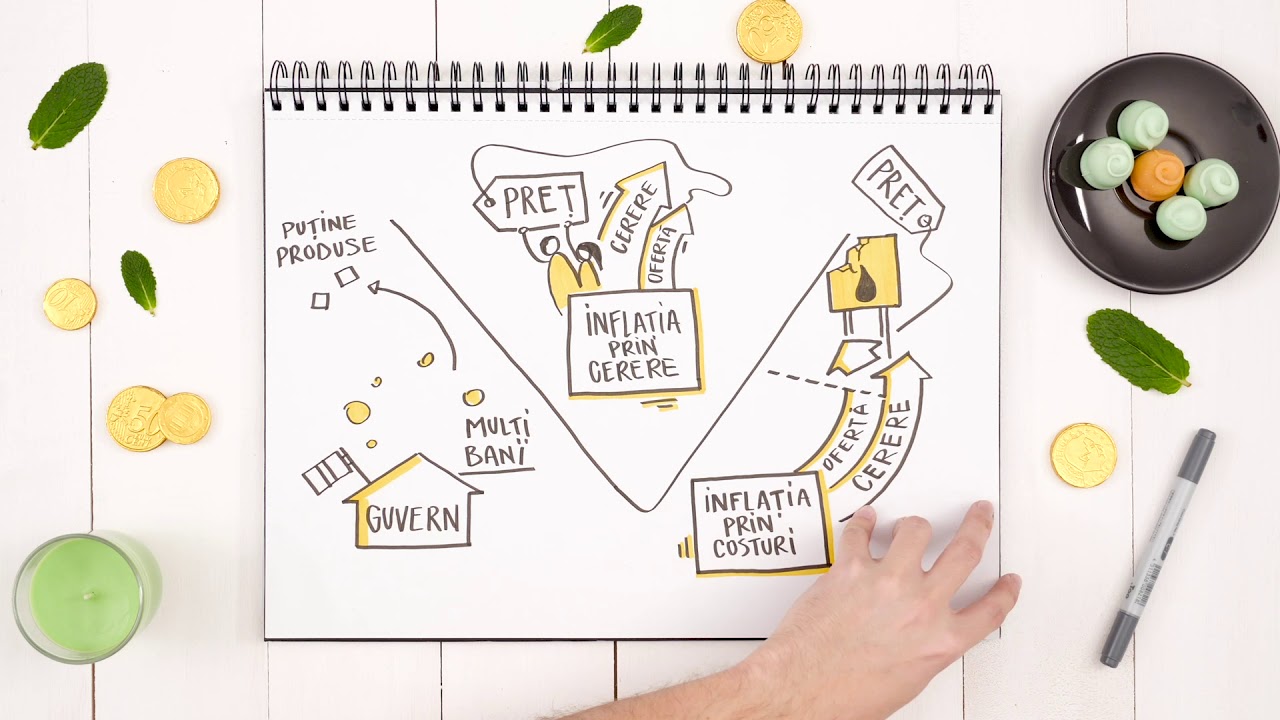 PUȚINE
PRODUSE
MULTI
BANI
GUVERN
PREȚ
CERERE
OFERTĂ
INFLATIA
PRIN
CERERE
PREȚ
OFERTĂ
CERERE
INFLAȚIA
PRIN
COSTURI